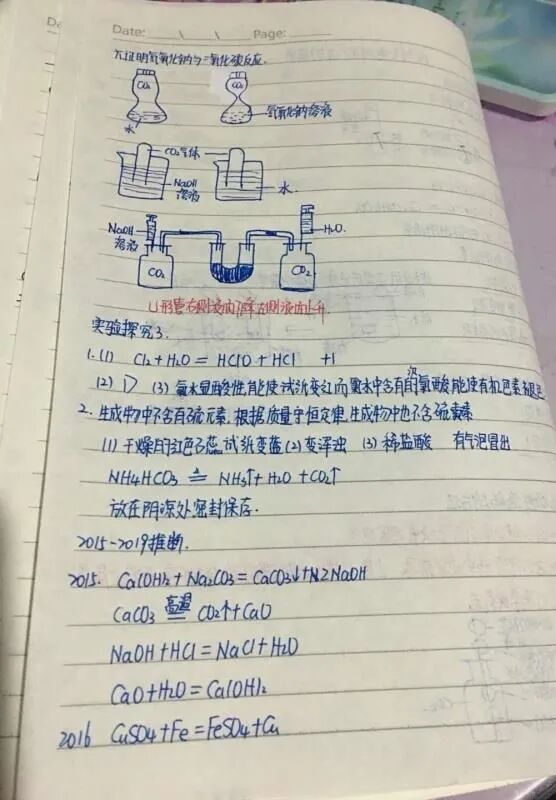 Date: Page:
证明氢氧化钠与二氧化碳反应.
CO₂ CO₂
水 氢氧化钠溶液
CO₂气体
NaOH
溶液 水.
NaOH
溶液 H₂O.
CO₂ CO₂
U形管右侧液面下降左侧液面上升
实验探究3.
1.(1) Cl₂+H₂O = HClO+HCl +1
(2) (3) 氯水显酸性,能使试纸变红而氯水中含有的次氯酸能使有机色素褪色
2. 生成物中不含有硫元素,根据质量守恒定律,生成物中也不含硫素
(1) 干燥的红色石蕊试纸变蓝(2)变浑浊 (3) 稀盐酸 有气泡冒出
NH4HCO₃ ≜ NH₃↑+H₂O +CO₂↑
放在阴凉处密封保存.
2015-2019推断.
2015. Ca(OH)₂+Na₂CO₃=CaCO₃↓+2NaOH
CaCO₃ 高温 CO₂↑+CaO
NaOH+HCl=NaCl+H₂O
CaO+H₂O=Ca(OH)₂
2016 CuSO4+Fe=FeSO4+Cu